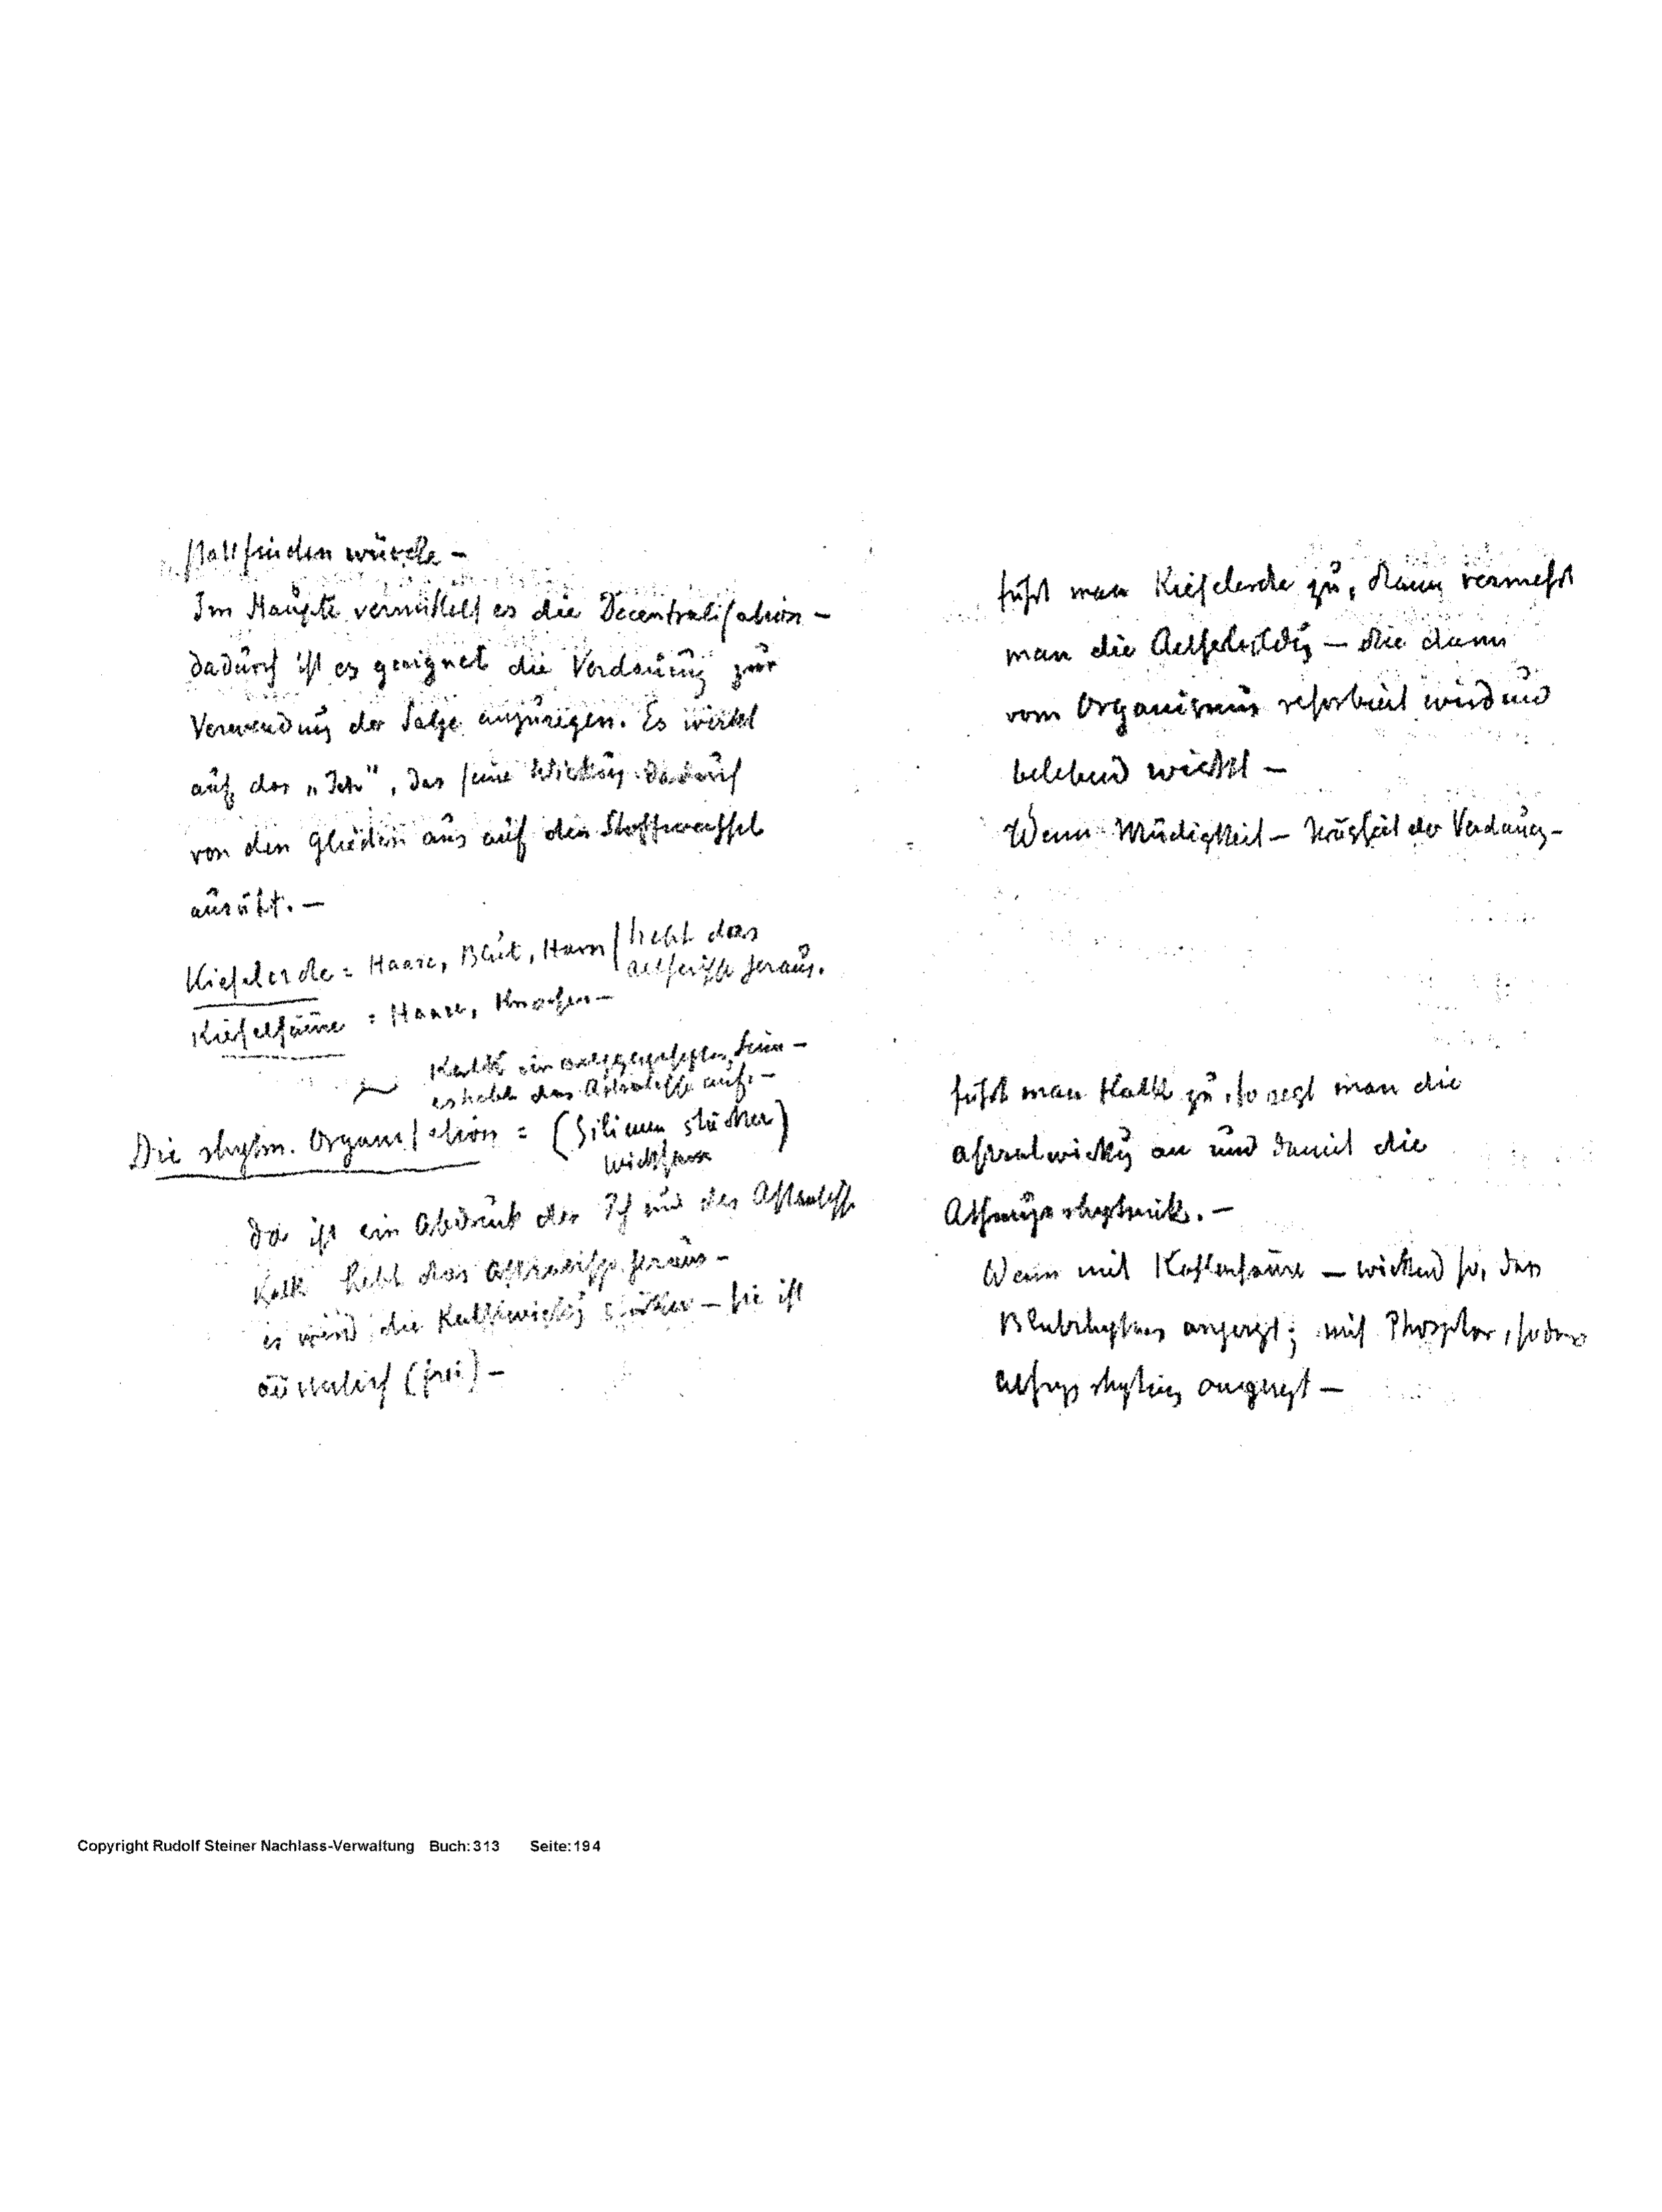 stattfinden würde –
Im Haupte vermittelt es die Decentralisation –
dadurch ist es geeignet die Verdauung zur
Verwendung der Salze anzuregen. Es wirkt
auf das „Ich", das seine Wirkung dadurch
von den Gliedern aus auf den Stoffwechsel
ausübt. –
Kieselerde = Haare, Blut, Harn / hebt das
aetherische heraus.
Kieselsäure = Haare, Knochen –
Kalk im entgegengesetzten Sinn –
es hebt das Astralische auf. –
Die rhytm. Organisation = (Silicium stärker)
wirksam
Da ist ein Abdruck des Ich und des Astralisch
Kalk hebt das heraus –
es wird die Kalkwirkung stärker – sie ist
äusserlich (frei) –
führt man Kieselerde zu, dann vermehrt
man die Aetherbildung – die dann
vom Organismus resorbiert wird und
belebend wirkt –
Wenn Müdigkeit – Trägheit der Verdauung –
führt man Kalk zu, so regt man die
Astralwirkung an und damit die
Athmungsrhytmik. –
Wenn mit Kohlensäure – wirkend so, dass
Blutrhytmus angeregt; mit Phosphor, sodass
rhytmus angeregt –
Copyright Rudolf Steiner Nachlass-Verwaltung Buch:313 Seite:194